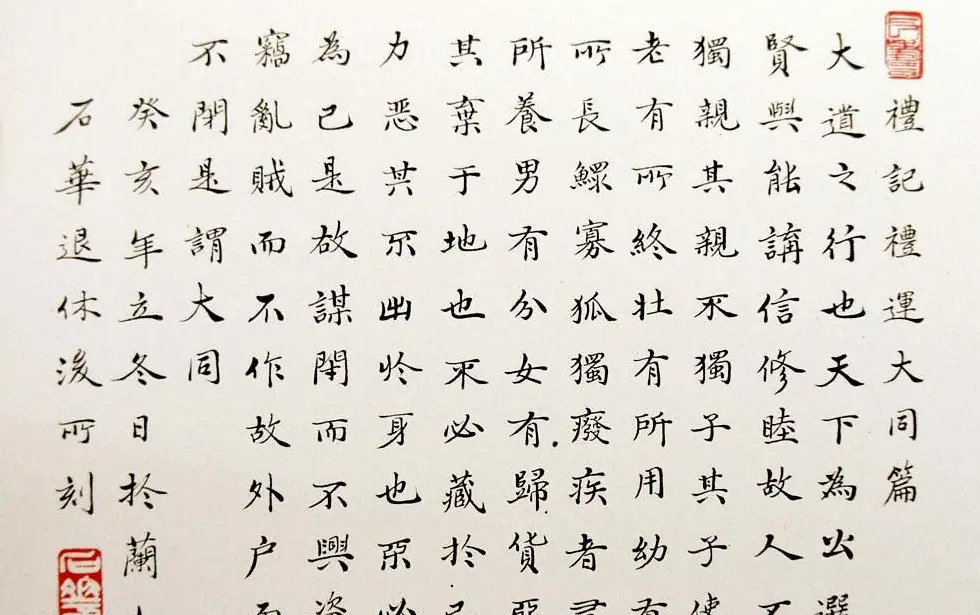 禮記禮運大同篇
大道之行也天下為公選
賢與能講信修睦故人不
獨親其親不獨子其子使
老有所終壯有所用幼有
所長鰥寡狐獨廢疾者皆
所養男有分女有歸貨惡
其棄于地也不必藏於己
力恶其不出於身也不必
為己是故謀閉而不興盜
竊亂賊而不作故外户而
不閉是謂大同
癸亥年立冬日於蘭
石華退休後所刻
石華